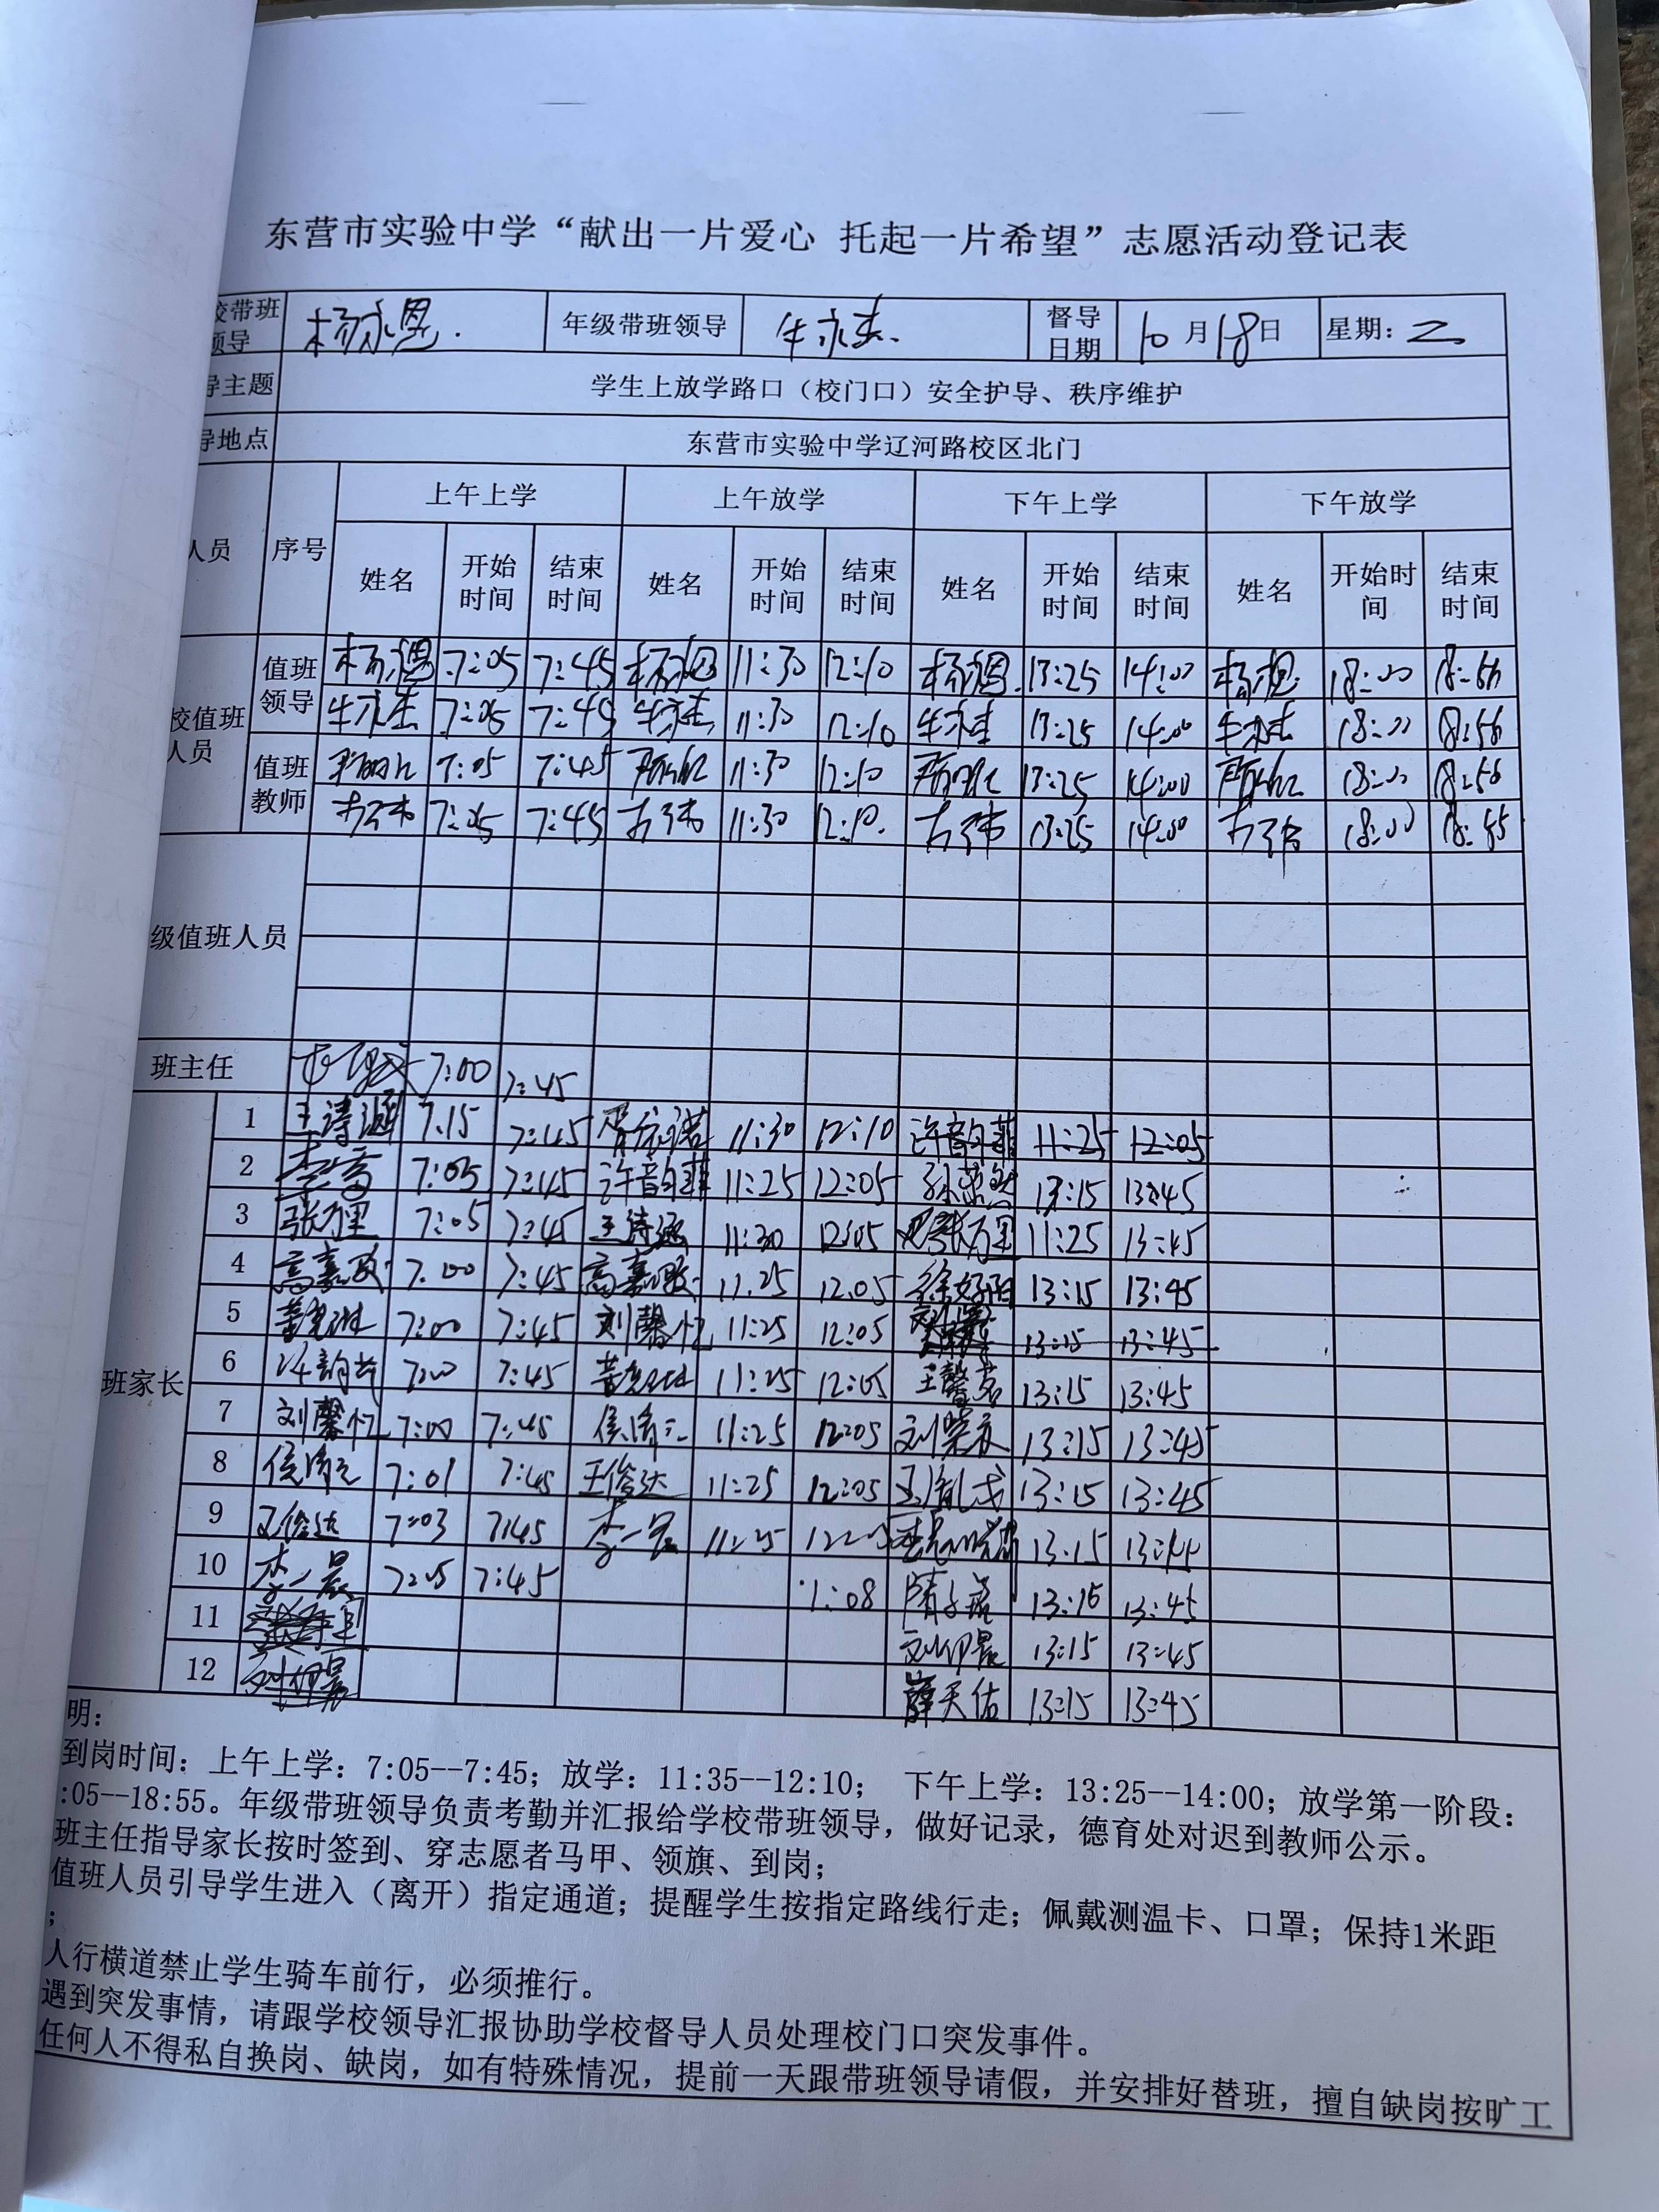 东营市实验中学“献出一片爱心 托起一片希望”志愿活动登记表
校带班领导 杨永恩. 年级带班领导 牛永杰. 督导日期 10月18日 星期: 二
导主题 学生上放学路口（校门口）安全护导、秩序维护
导地点 东营市实验中学辽河路校区北门
人员 序号 上午上学 上午放学 下午上学 下午放学
姓名 开始时间 结束时间 姓名 开始时间 结束时间 姓名 开始时间 结束时间 姓名 开始时间 结束时间
校值班人员 值班领导 7:05 7:45 11:30 12:10 13:25 14:00 18:00 18:56
牛永杰 7:05 7:45 牛永杰 11:30 12:10 牛永杰 13:25 14:00 牛永杰 18:00 18:56
值班教师 7:05 7:45 11:30 12:10 13:25 14:00 18:00 18:56
7:05 7:45 11:30 12:10. 13:25 14:00 18:00 18:55
级值班人员
班主任 7:00 7:45
班家长
1 王诗涵 7.15 7:45 胥依诺 11:30 12:10 许音菲 11:25 12:05
2 李雪 7:05 7:45 许音菲 11:25 12:05 13:15 13:45
3 张万里 7:05 7:45 王诗涵 11:30 12:05 张万里 11:25 13:45
4 高嘉政 7:00 7:45 高嘉政 11.25 12.05 徐好阳 13:15 13:45
5 7:00 7:45 刘馨忆 11:25 12:05 13:15 13:45
6 7:00 7:45 11:25 12:05 王馨茗 13:15 13:45
7 刘馨忆 7:00 7:45 侯清元 11:25 12:05 13:15 13:45
8 侯清元 7:01 7:45 王俊达 11:25 12:05 13:15 13:45
9 王俊达 7:03 7:45 李一晨 11:25 13:15 13:44
10 李一晨 7:05 7:45 1:08 13:15 13:45
11 13:15 13:45
12 薛天佑 13:15 13:45
明：
到岗时间：上午上学：7:05--7:45；放学：11:35--12:10； 下午上学：13:25--14:00；放学第一阶段：
:05--18:55。年级带班领导负责考勤并汇报给学校带班领导，做好记录，德育处对迟到教师公示。
班主任指导家长按时签到、穿志愿者马甲、领旗、到岗；
值班人员引导学生进入（离开）指定通道；提醒学生按指定路线行走；佩戴测温卡、口罩；保持1米距
；
人行横道禁止学生骑车前行，必须推行。
遇到突发事情，请跟学校领导汇报协助学校督导人员处理校门口突发事件。
任何人不得私自换岗、缺岗，如有特殊情况，提前一天跟带班领导请假，并安排好替班，擅自缺岗按旷工